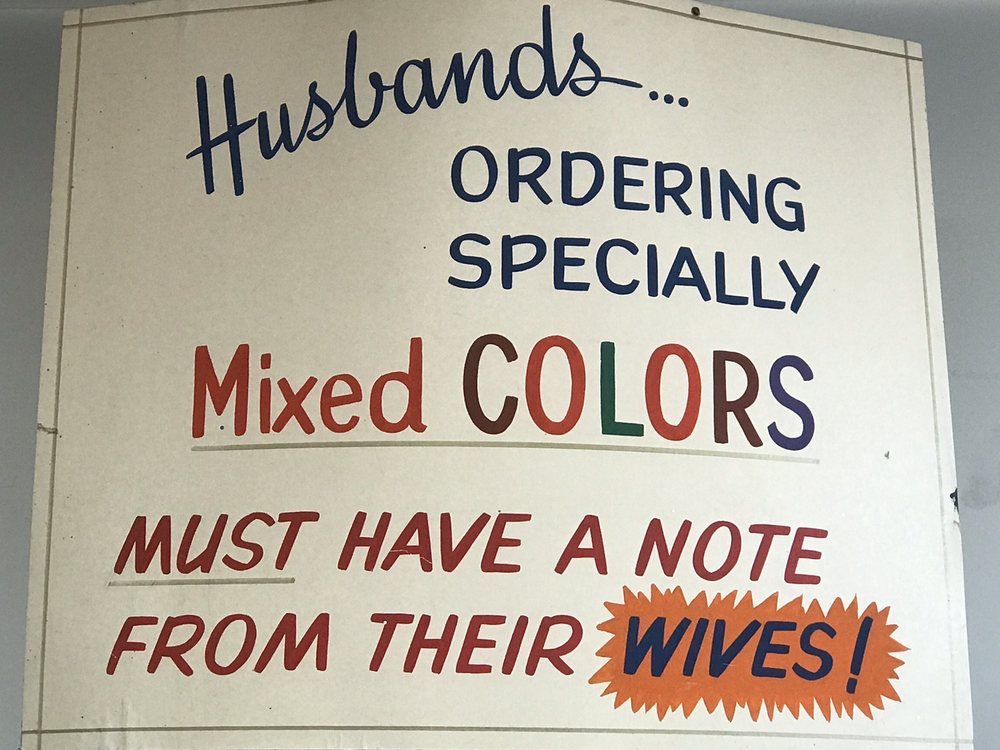 Husbands...
ORDERING
SPECIALLY
Mixed COLORS
MUST HAVE A NOTE
FROM THEIR WIVES!